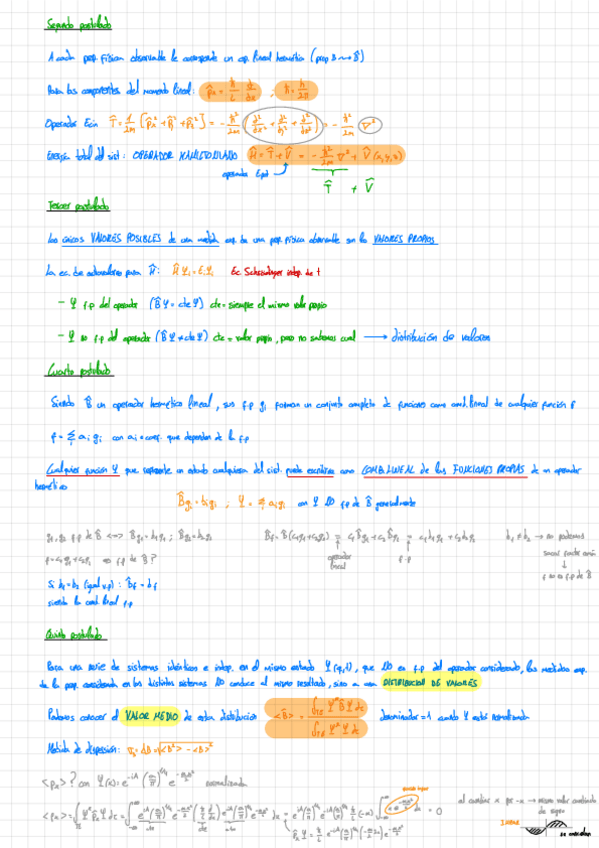 Segundo postulado
A cada prop física observable le corresponde un op. lineal hermítico (prop B → B̂)
Para las componentes del momento lineal: p̂x = ħ/i ∂/∂x ; ħ = h/2π
Operador Ecin T̂ = 1/2m [p̂x² + p̂y² + p̂z²] = -ħ²/2m (∂²/∂x² + ∂²/∂y² + ∂²/∂z²) = -ħ²/2m ∇²
Energía total del sist: OPERADOR HAMILTONIANO Ĥ = T̂ + V̂ = -ħ²/2m ∇² + V̂(x,y,z)
operador Epot T̂ + V̂
Tercer postulado
Los únicos VALORES POSIBLES de una medida exp. de una prop física observable son los VALORES PROPIOS
La ec. de autovalores para Ĥ: Ĥ Ψi = Ei Ψi Ec. Schrödinger indep. de t
- Ψ f.p del operador (B̂Ψ = cte Ψ) cte = siempre el mismo valor propio
- Ψ no f.p del operador (B̂Ψ ≠ cte Ψ) cte = valor propio, pero no sabemos cual → distribución de valores
Cuarto postulado
Siendo B̂ un operador hermético lineal, sus f.p gi forman un conjunto completo de funciones como comb. lineal de cualquier función f
f = Σ ai gi con ai = coef. que dependen de la f.p
Cualquier función Ψ que represente un estado cualquiera del sist. puede escribirse como COMB. LINEAL de las FUNCIONES PROPIAS de un operador
hermético
B̂gi = bi gi ; Ψ = Σ ai gi con Ψ NO f.p de B̂ generalmente
g1, g2 f.p de B̂ <=> B̂g1 = b1g1 ; B̂g2 = b2g2 B̂f = B̂(c1g1 + c2g2) = c1B̂g1 + c2B̂g2 = c1b1g1 + c2b2g2 b1 ≠ b2 → no podemos
f = c1g1 + c2g2 es f.p de B̂? operador lineal f.p sacar factor común
Si b1 = b2 (igual v.p) : B̂f = bf f no es f.p de B̂
siendo la comb lineal f.p
Quinto postulado
Para una serie de sistemas idénticos e indep. en el mismo estado Ψ(q,t), que NO es f.p del operador considerado, las medidas exp.
de la prop. considerada en los distintos sistemas NO conduce al mismo resultado, sino a una DISTRIBUCION DE VALORES
Podemos conocer el VALOR MEDIO de esta distribución <B> = ∫ Ψ* B̂ Ψ dτ / ∫ Ψ* Ψ dτ denominador = 1 cuando Ψ está normalizada
Medida de dispersión: = ΔB = √<B²> - <B>²
<px>? con Ψ(x) = normalizada
<px> = ∫ Ψ* p̂x Ψ dτ = 0 al cambiar x por -x → mismo valor cambiado
de signo
IMPAR
se cancelan